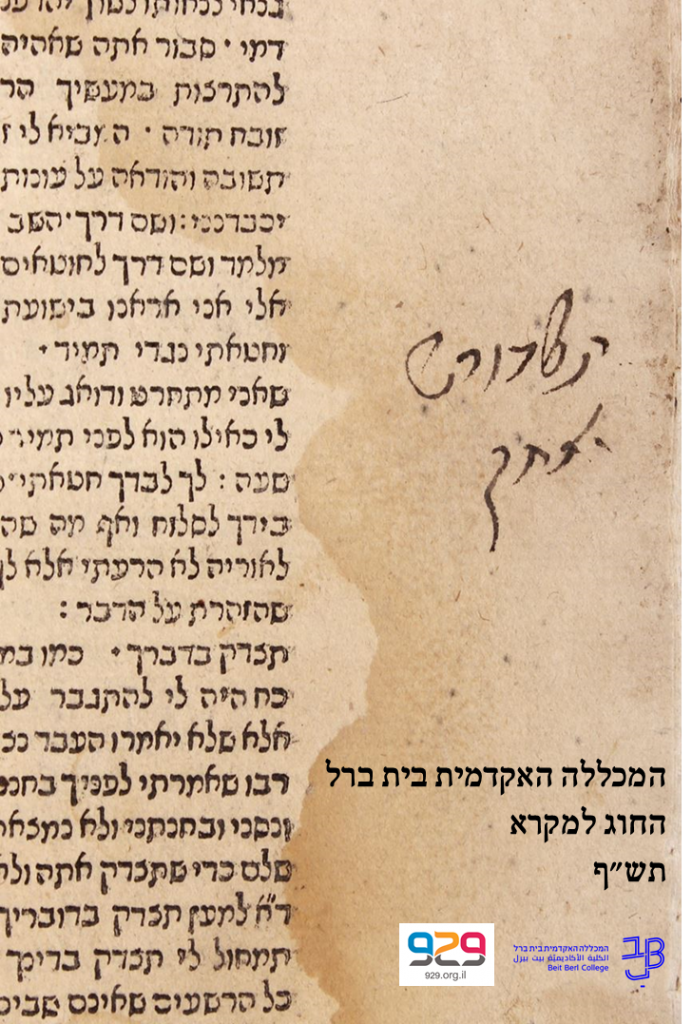 דמי · סבור אתה שאהיה
להתרצות במעשיך הר
זובח תודה · המביא לי ז
תשובה והודאה על עונות
יכבדנני : ושם דרך · השב
מלמד ושם דרך לחוטאים
אלי אני אראנו בישועת
וחטאתי נגדי תמיד ·
שאני מתחרט ודואג עליו
לי כאילו הוא לפני תמיד
שעה : לך לבדך חטאתי
בידך לסלוח ואף מה שה
לאוריה לא הרעתי אלא לך
שהזהרת על הדבר :
תצדק בדברך · כמו במ
כח היה לי להתגבר על
אלא שלא יאמרו העבד נצ
רבו שאמרתי לפניך בחנ
ונסני ובחנתני ולא נמצאת
שלם כדי שתצדק אתה ולא
ד"א למען תצדק בדובריך
תמחול לי תצדק בדינך
כל הרשעים שאינם שבים
המכללה האקדמית בית ברל
החוג למקרא
תש״ף
929
929.org.il
המכללה האקדמית בית ברל
الكلية الأكاديمية بيت بيرل
Beit Berl College